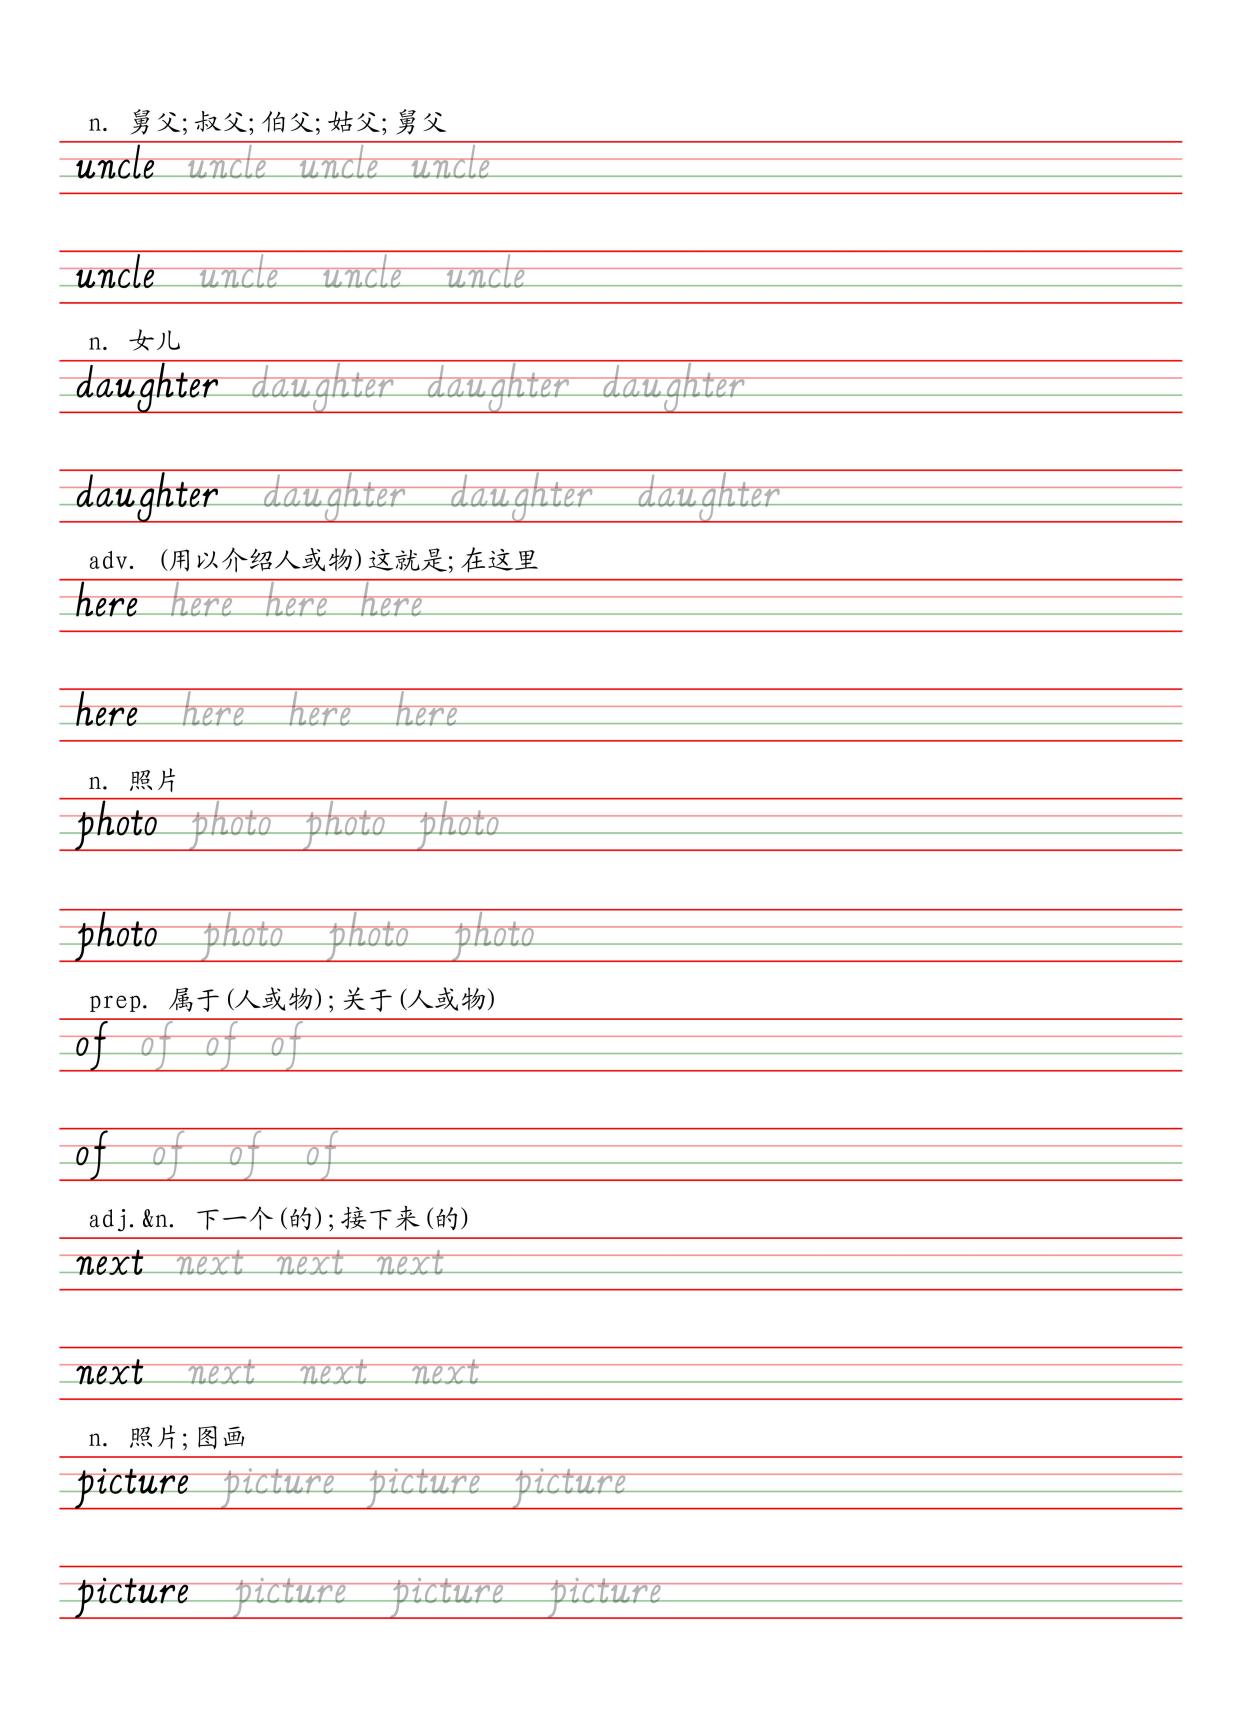 n. 舅父;叔父;伯父;姑父;舅父
uncle uncle uncle uncle
uncle uncle uncle uncle
n. 女儿
daughter daughter daughter daughter
daughter daughter daughter daughter
adv. (用以介绍人或物)这就是;在这里
here here here here
here here here here
n. 照片
photo photo photo photo
photo photo photo photo
prep. 属于(人或物);关于(人或物)
of of of of
of of of of
adj.&n. 下一个(的);接下来(的)
next next next next
next next next next
n. 照片;图画
picture picture picture picture
picture picture picture picture